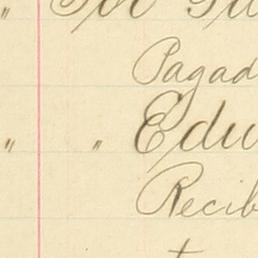 " Por
Pagad
" " Edu
Recib